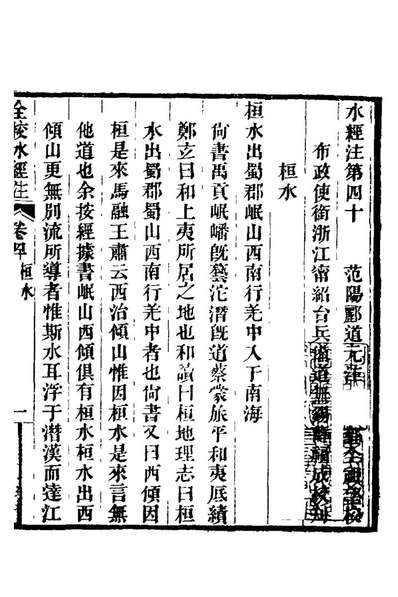 水經注第四十　范陽酈道元注
布政使銜浙江甯紹台兵備道無錫薛福成校刊
桓水
桓水出蜀郡岷山西南行羌中入于南海
尙書禹貢岷嶓旣藝沱潛旣道蔡蒙旅平和夷厎績
鄭玄曰和上夷所居之地也和讀曰桓地理志曰桓
水出蜀郡蜀山西南行羌中者也尙書又曰西傾因
桓是來馬融王肅云西治傾山惟因桓水是來言無
他道也余按經據書岷山西傾俱有桓水桓水出西
傾山更無別流所導者惟斯水耳浮于潛漢而達江
全校水經注　卷四十　桓水　一